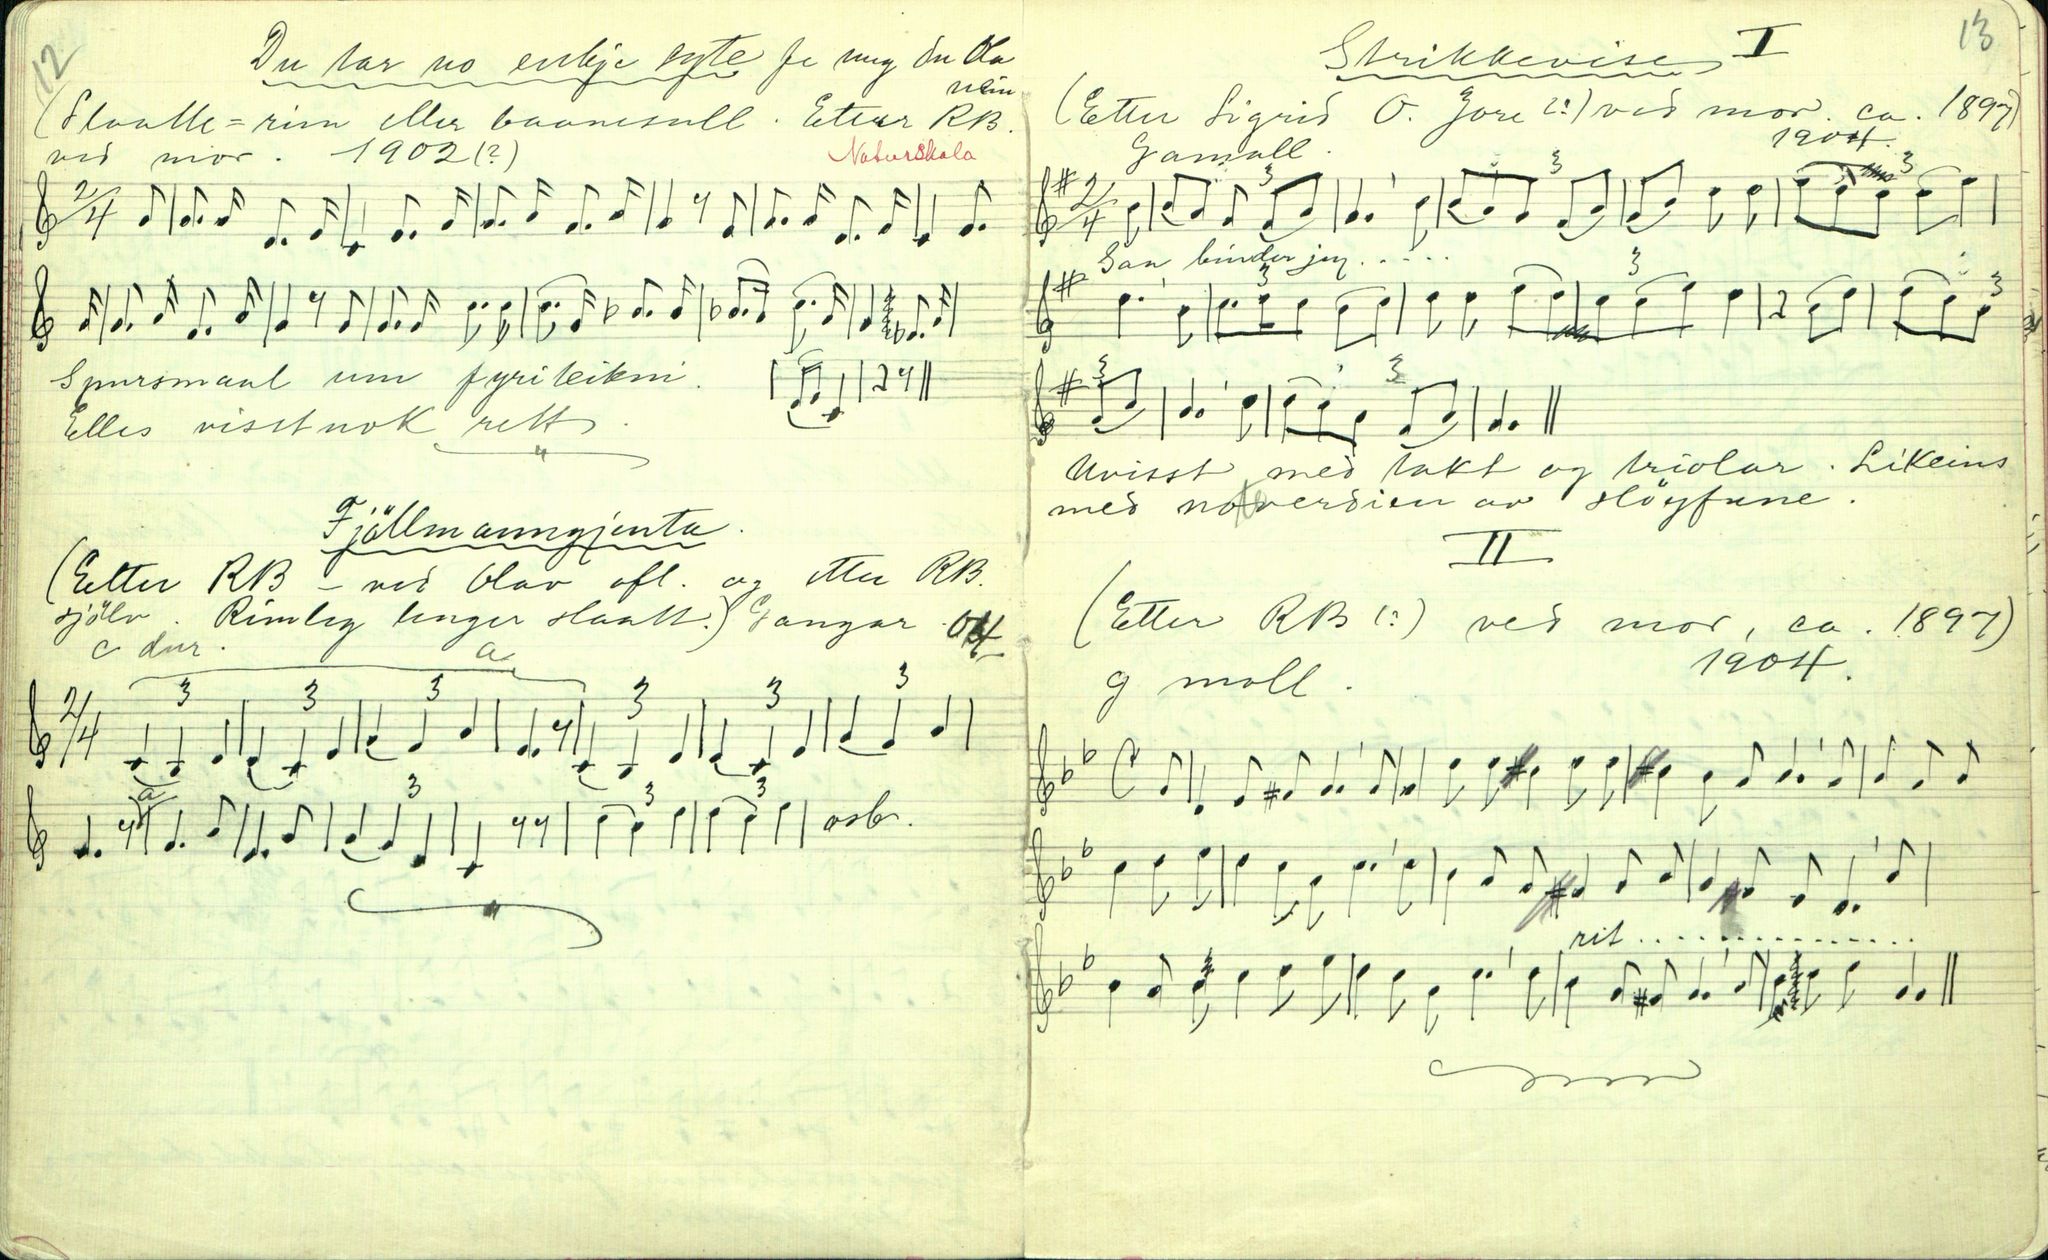 12
Du tar no enkje syte fe meg du Ola
min
(Slaatte=rim eller baanesull. Etter RB.
ved mor. 1902(?)
Naturskala
2/4
Spursmaal um fyriteikni.
Elles visstnok rett.
Fjöllmanngjenta.
(Etter RB – ved Olav ofl. og etter RB.
sjölv. Rimleg lenger slaatt.) Gangar.
c dur.
a
2/4
3 3 3 3 3 3
a
3 3 3
osb.
13
Strikkevise I
(Etter Sigrid O. Jore (?) ved mor. ca. 1897)
1904.
Gamall.
2/4
3 3 3
Saa binder jeg.....
3 3 3
3 3
Uvisst med takt og triolar. Likeins
med noteverdien av slöyfune.
II
(Etter RB (?) ved mor, ca. 1897)
1904.
g moll.
C
rit..............